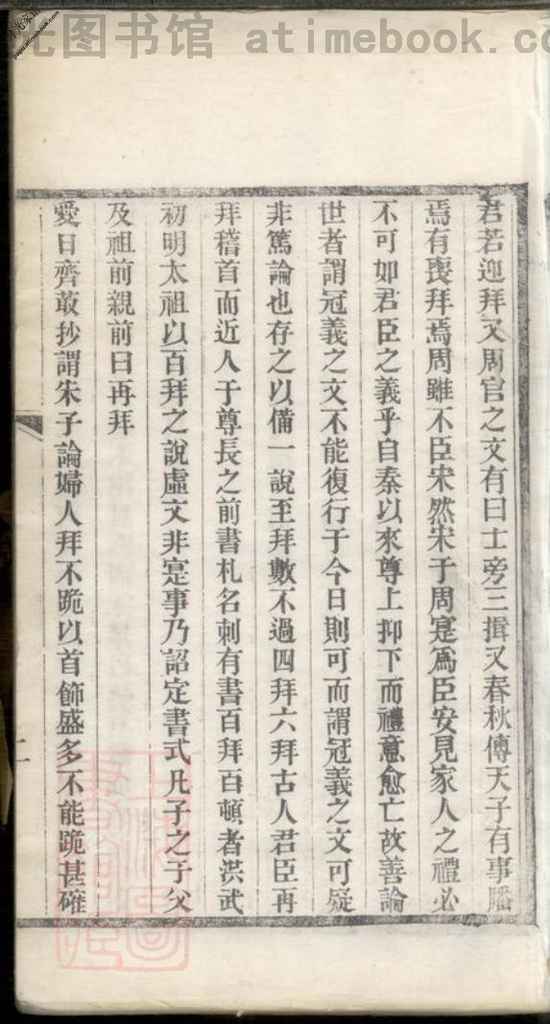 光图书馆 atimebook.com
君若迎拜又周官之文有曰士旁三揖又春秋傳天子有事膰
焉有喪拜焉周雖不臣宋然宋于周寔爲臣安見家人之禮必
不可如君臣之義乎自秦以來尊上抑下而禮意愈亡故善論
世者謂冠義之文不能復行于今日則可而謂冠義之文可疑
非篤論也存之以備一說至拜數不過四拜六拜古人君臣再
拜稽首而近人于尊長之前書札名刺有書百拜百頓者洪武
初明太祖以百拜之說虛文非寔事乃詔定書式凡子之于父
及祖前親前曰再拜
愛日齊敢抄謂朱子論婦人拜不跪以首飾盛多不能跪甚確
二